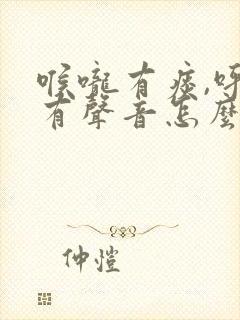 喉嚨有痰,呼
有聲音怎麼
仲愷